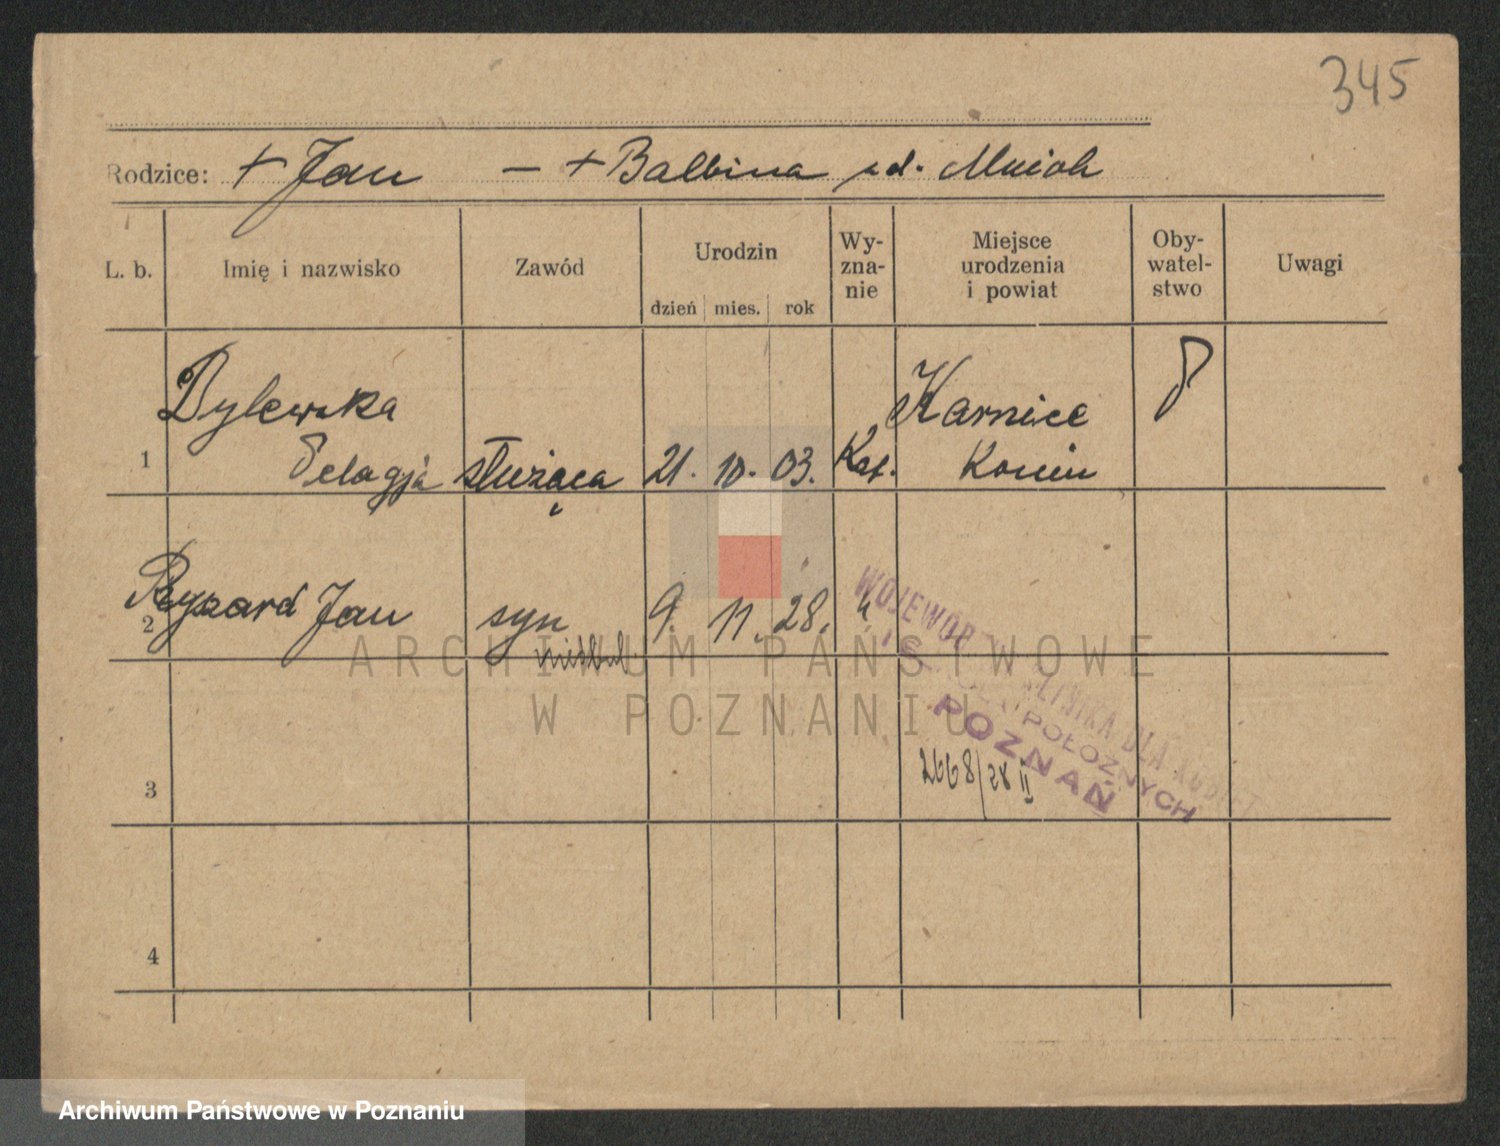 345
Rodzice: + Jan — + Balbina zd. Mnioh
L. b. Imię i nazwisko Zawód Urodzin dzień mies. rok Wy-zna-nie Miejsce urodzenia i powiat Oby-watel-stwo Uwagi
Dylewska Karnice P
1 Pelagja służąca 21. 10. 03. Kat. Konin
2 Ryszard Jan syn 9. 11. 28. "
nieślub.
WOJEWÓDZKA KLINIKA DLA KOBIET
POŁOŻNYCH
POZNAŃ
2668/28 II
3
4
ARCHIWUM PAŃSTWOWE
W POZNANIU
Archiwum Państwowe w Poznaniu